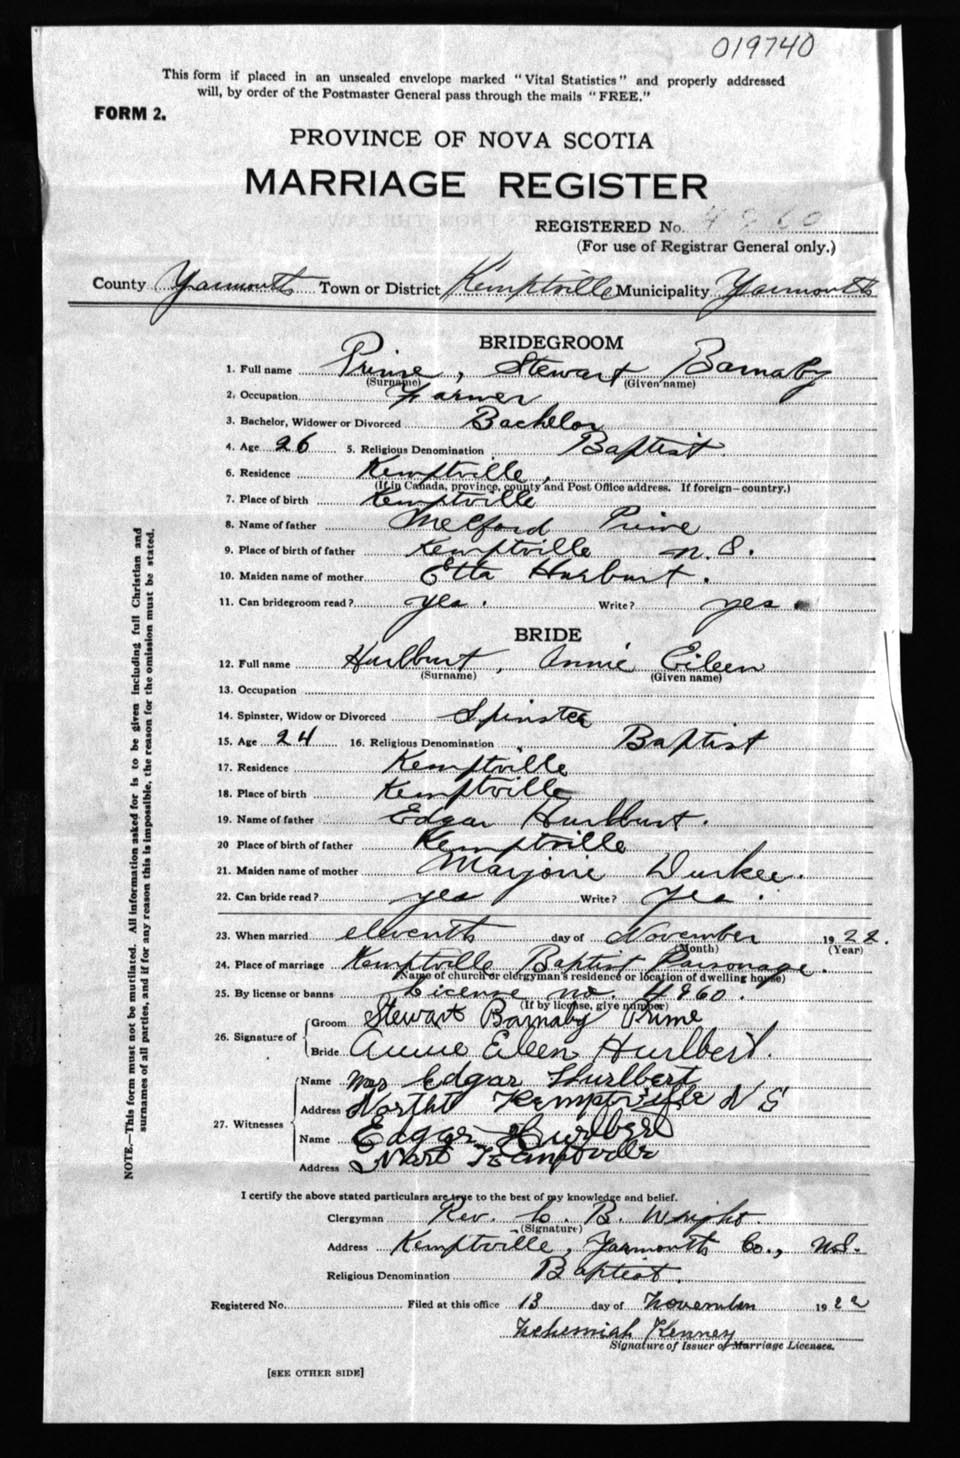 019740
This form if placed in an unsealed envelope marked "Vital Statistics" and properly addressed
will, by order of the Postmaster General pass through the mails "FREE."
FORM 2.
PROVINCE OF NOVA SCOTIA
MARRIAGE REGISTER
REGISTERED No. 4960
(For use of Registrar General only.)
County Yarmouth Town or District Kemptville Municipality Yarmouth
BRIDEGROOM
1. Full name Prime, Stewart Barnaby
(Surname) (Given name)
2. Occupation Farmer
3. Bachelor, Widower or Divorced Bachelor
4. Age 26 5. Religious Denomination Baptist
6. Residence Kemptville,
(If in Canada, province, county and Post Office address. If foreign—country.)
7. Place of birth Kemptville
8. Name of father Melford Prime
9. Place of birth of father Kemptville N. S.
10. Maiden name of mother Etta Hurlburt.
11. Can bridegroom read? yes. Write? yes.
BRIDE
12. Full name Hurlburt, Annie Eileen
(Surname) (Given name)
13. Occupation
14. Spinster, Widow or Divorced Spinster
15. Age 24 16. Religious Denomination Baptist
17. Residence Kemptville
18. Place of birth Kemptville
19. Name of father Edgar Hurlburt.
20 Place of birth of father Kemptville
21. Maiden name of mother Marjorie Durkee.
22. Can bride read? yes Write? yes.
23. When married eleventh day of November 1922.
(Month) (Year)
24. Place of marriage Kemptville Baptist Parsonage.
(Name of church or clergyman's residence or location of dwelling house)
25. By license or banns License no. 4960.
(If by license, give number)
26. Signature of Groom Stewart Barnaby Prime
Bride Annie Eileen Hurlbert.
27. Witnesses Name Mrs Edgar Hurlbert
Address North Kemptville N S
Name Edgar Hurlbert
Address North Kemptville
I certify the above stated particulars are true to the best of my knowledge and belief.
Clergyman Rev. C. B. Wright.
(Signature)
Address Kemptville, Yarmouth Co., N.S.
Religious Denomination Baptist.
Registered No. Filed at this office 13 day of November 1922
Nehemiah Kenney
Signature of Issuer of Marriage Licenses.
[SEE OTHER SIDE]
NOTE.—This form must not be mutilated. All information asked for is to be given including full Christian and
surnames of all parties, and if for any reason this is impossible, the reason for the omission must be stated.